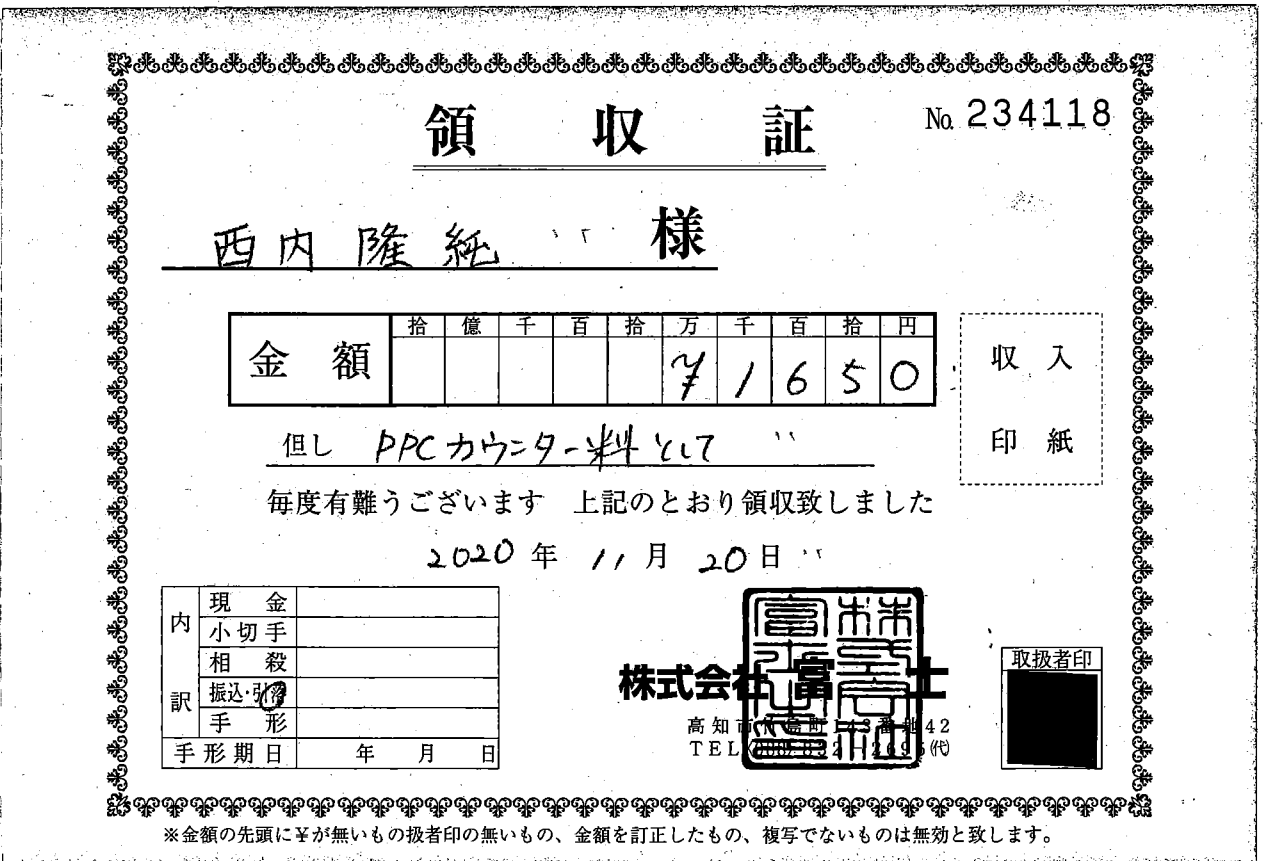 領収証
No. 234118
西内 隆純 様
金額 拾 億 千 百 拾 万 千 百 拾 円
¥1650
収入
印紙
但し PPCカウンター料として
毎度有難うございます 上記のとおり領収致しました
2020年 11月 20日
内訳
現金
小切手
相殺
振込・引落
手形
手形期日 年 月 日
株式会社 富士
取扱者印
高知市竹島町143番地42
TEL 832-2695(代)
※金額の先頭に¥が無いもの扱者印の無いもの、金額を訂正したもの、複写でないものは無効と致します。